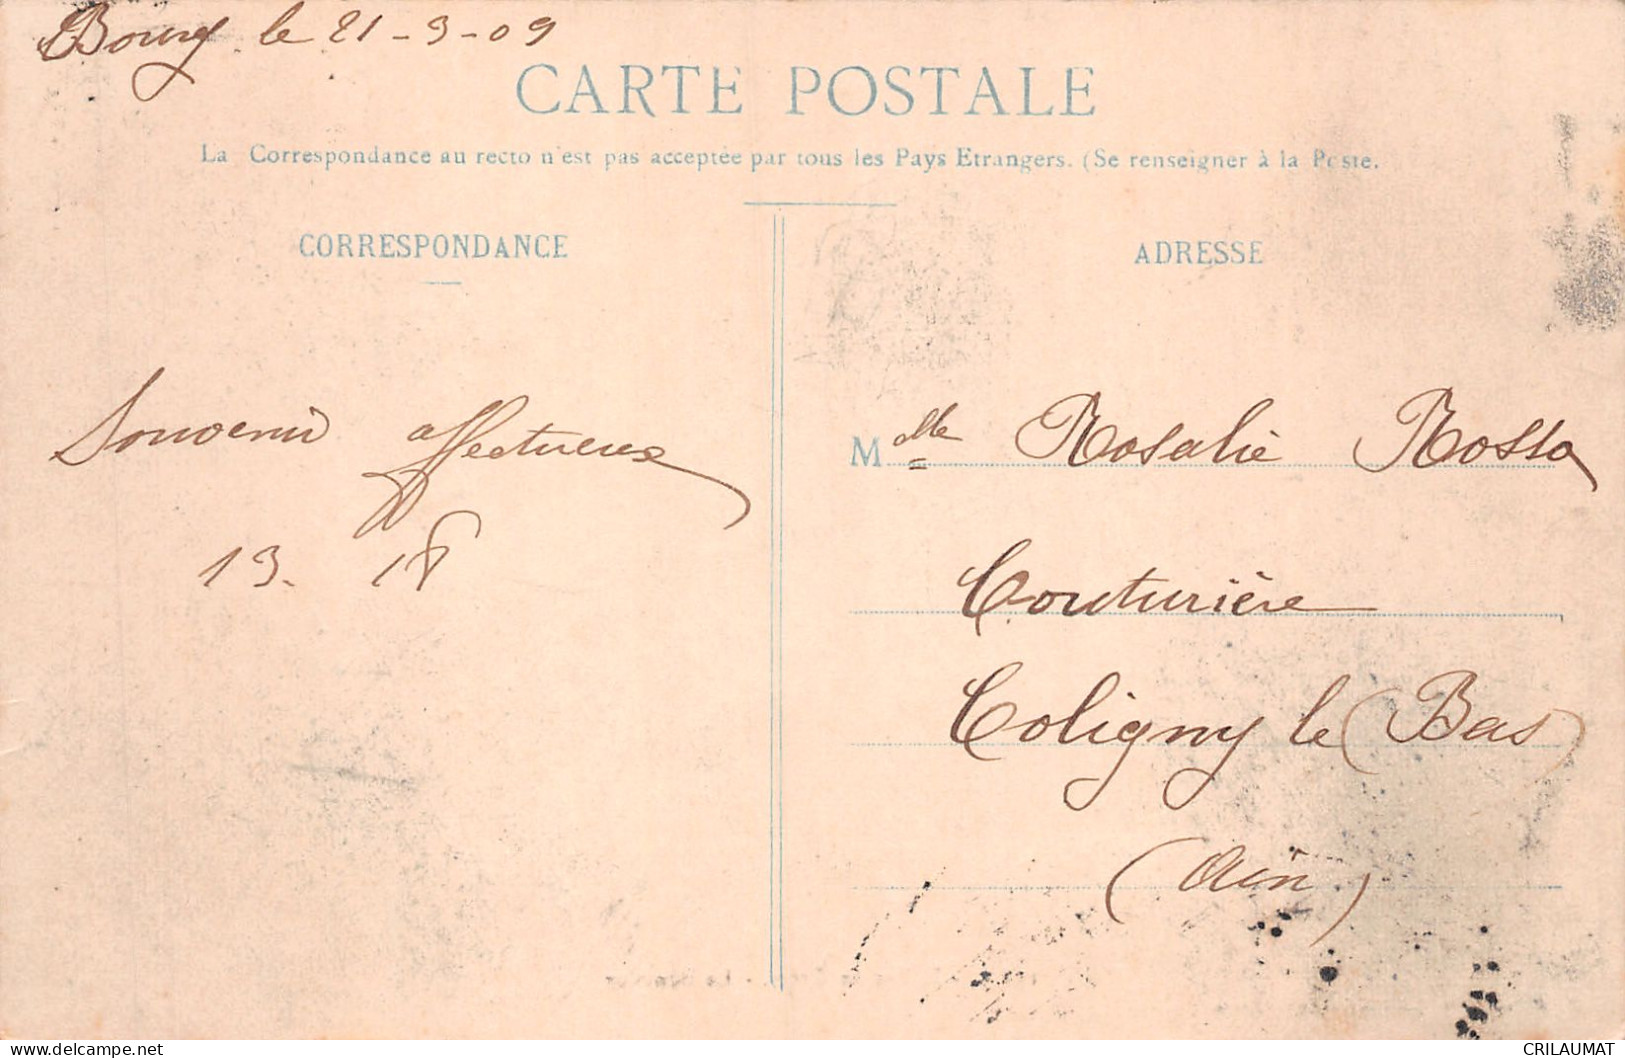 Bourg le 21-3-09
CARTE POSTALE
La Correspondance au recto n'est pas acceptée par tous les Pays Etrangers. (Se renseigner à la Poste.
CORRESPONDANCE
ADRESSE
Souvenir affectueux
13. 18
Mdlle Rosalie Rossa
Couturière
Coligny le (Bas)
(Ain)
CRILAUMAT